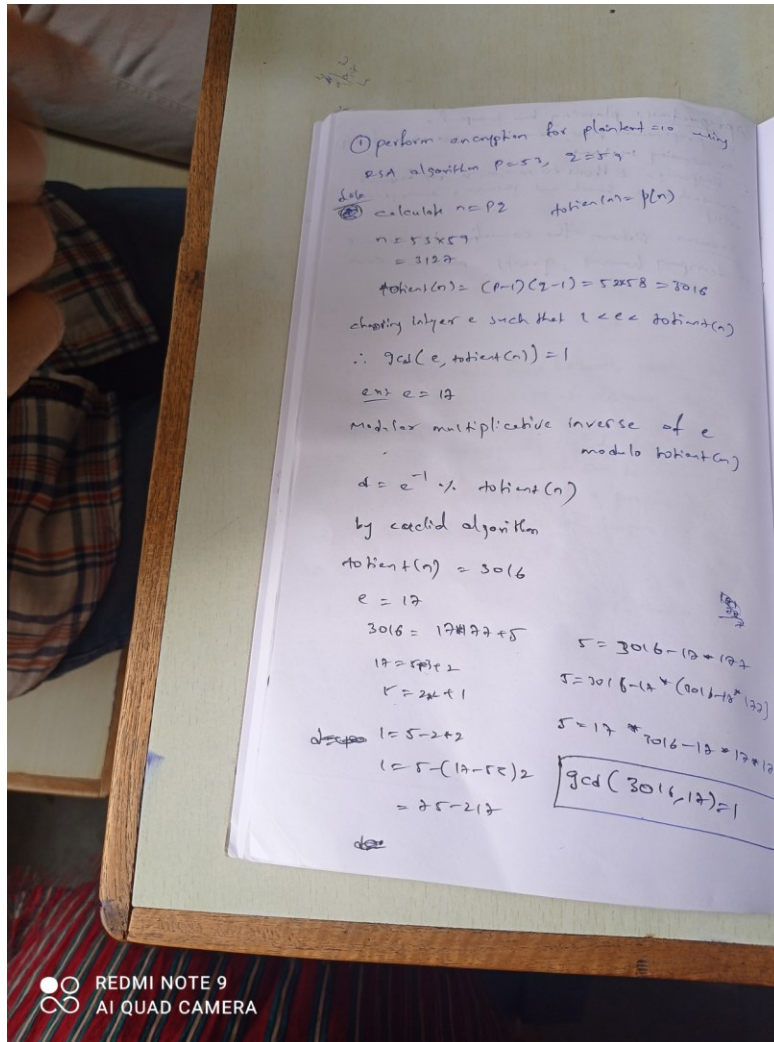 ① perform encryption for plaintext = 10 using
RSA algorithm P=53, q=59
calculate n = Pq totien(n) = p(n)
n = 53×59
= 3127
totient(n) = (p-1)(q-1) = 52×58 = 3016
choosing integer e such that 1<e< totient(n)
∴ gcd(e, totient(n)) = 1
e = 17
Modular multiplicative inverse of e
modulo totient(n)
d = e⁻¹ % totient(n)
by euclid algorithm
totient(n) = 3016
e = 17
3016 = 17*177+5
17 = 5*3+2
5 = 2*2+1
1 = 5-2*2
= 75-217
5 = 3016-17*177
5 = 3016-17*(3016-17*177)
5 = 17*3016-17*17*17
gcd(3016,17)=1
REDMI NOTE 9
AI QUAD CAMERA